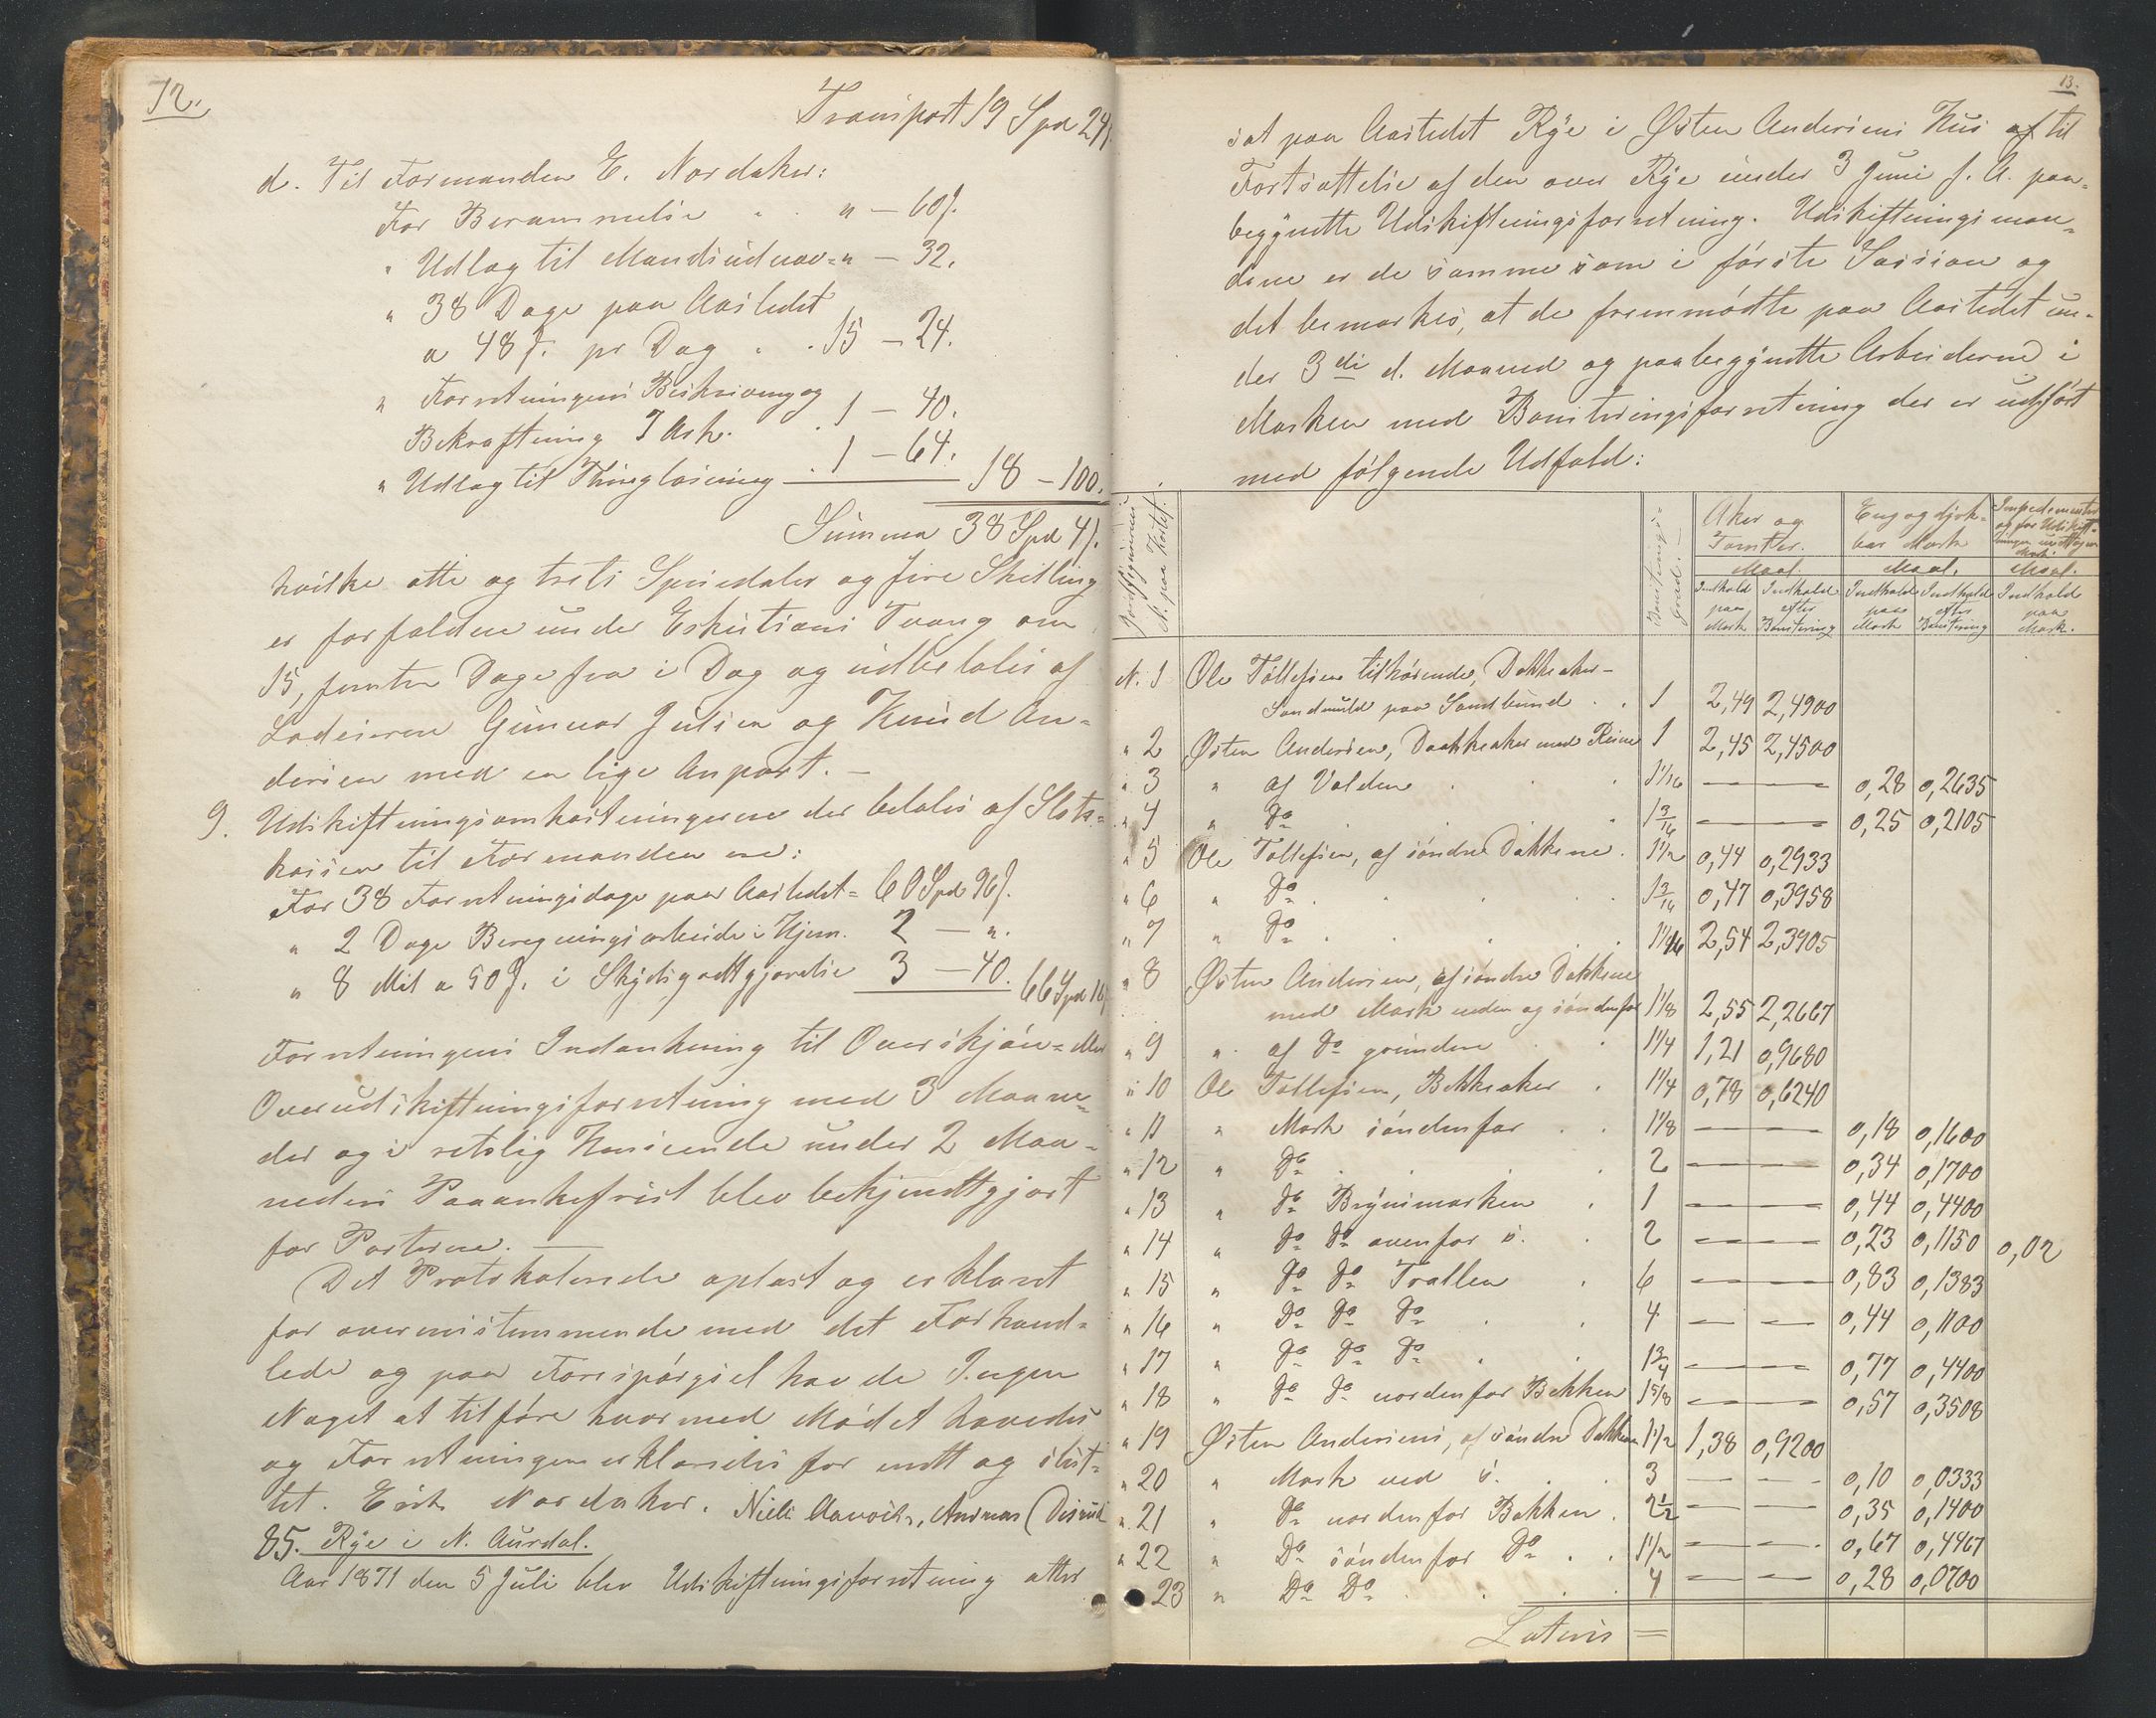 12.
Transport 19 Spd 24 ſ.
d. Til Formanden E. Nordaker:
For Berammelse " " — 60 ſ.
" Udlæg til Mandsudnæv= " — 32.
" 38 Dage paa Aastedet
a 48 ſ. pr Dag . . 15 — 24.
" Forretningens Beskrivning og
Bekræftning 7 Ark. . 1 — 40.
" Udlæg til Thinglæsning . 1 — 64. 18 — 100.
Summa 38 Spd 4 ſ.
hvilke otte og treti Speciedaler og fire Skilling
er forfaldne under Exekutions Tvang om
15, femten Dage fra i Dag og udbetales af
Lodeierne Gunnar Julsen og Knud An=
dersen med en lige Anpart. —
9. Udskiftningsomkostningerne der betales af Stats=
kassen til Formanden ere:
For 38 Forretningsdage paa Aastedet = 60 Spd 96 ſ.
" 2 Dage Beregningsarbeide i Hjem. 2 — ".
" 8 Mil a 50 ſ. i Skydsgodtgjørelse 3 — 40. 66 Spd 16 ſ.
Forretningens Indankning til Overskjøn= eller
Overudskiftningsforretning med 3 Maane=
der og i retslig Henseende under 2 Maa=
neders Paaankefrist blev bekjendtgjort
for Parterne. —
Det Protokolerede oplæst og erklæret
for overensstemmende med det Forhand=
lede og paa Forespørgsel havde Ingen
Noget at tilføre hvormed Mødet hævedes
og Forretningen erklæredes for endt og slut=
tet. E. Nordaker. Niels, Andreas
85. Rye i N. Aurdal.
Aar 1871 den 5 Juli blev Udskiftningsforretning atter
13.
sat paa Aastedet Rye i Østen Andersens Hus af til
Fortsættelse af den over Rye under 3 Juni f. A. paa=
begyndte Udskiftningsforretning. Udskiftningsmæn=
dene er de samme som i første Session og
det bemærkes, at de fremmødte paa Aastedet un=
der 3die d. Maaned og paabegyndte Arbeiderne i
Marken med Boniteringsforretning der er udført
med følgende Udfald:
N. paa Kartet. Boniterings= grad. Aker og Tomter. Eng og dyrk= bar Mark Impedimenter og for Udskift= ningen undtagen Mark.
Maal. Maal. Maal.
Indhold paa Mark Indhold efter Bonitering Indhold paa Mark Indhold efter Bonitering Indhold paa Mark.
N. 1 Ole Tollefsen tilhørende, Dokkeaker —
Sandmuld paa Sandbund . . 1 2,49 2,4900
" 2 Østen Andersen, Dokkeaker med Reine 1 2,45 2,4500
" 3 " af Volden . . 1 1/16 — — 0,28 0,2635
" 4 " Do . . 1 3/16 — — 0,25 0,2105
" 5 Ole Tollefsen, af søndre Dokkene . 1 1/2 0,44 0,2933
" 6 " Do . . . . 1 3/16 0,47 0,3958
" 7 " Do . . . . 1 1/16 2,54 2,3905
" 8 Østen Andersen, af søndre Dokkene
med Mark neden og søndenfor 1 1/8 2,55 2,2667
" 9 " af Do grunden . . 1 1/4 1,21 0,9680
" 10 Ole Tollefsen, Bekkeaker . 1 1/4 0,78 0,6240
" 11 " Mark søndenfor . . 1 1/8 — — 0,18 0,1600
" 12 " Do . . . 2 — — 0,34 0,1700
" 13 " Do Brynsmarken . 1 — — 0,44 0,4400
" 14 " Do Do ovenfor s. . 2 — — 0,23 0,1150 0,02
" 15 " Do Do Trallen . 6 — — 0,83 0,1383
" 16 " Do Do Do . . 4 — — 0,44 0,1100
" 17 " Do Do Do . . 1 3/4 — — 0,77 0,4400
" 18 " Do Do nordenfor Bekken 1 5/8 — — 0,57 0,3508
" 19 Østen Andersens, af søndre Dokken 1 1/2 1,38 0,9200
" 20 " Mark ved s. . . 3 — — 0,10 0,0333
" 21 " Do nordenfor Bekken . 2 1/2 — — 0,35 0,1400
" 22 " Do søndenfor Do . . 1 1/2 — — 0,67 0,4467
" 23 " Do Do . . . 4 — — 0,28 0,0700
Lateris =